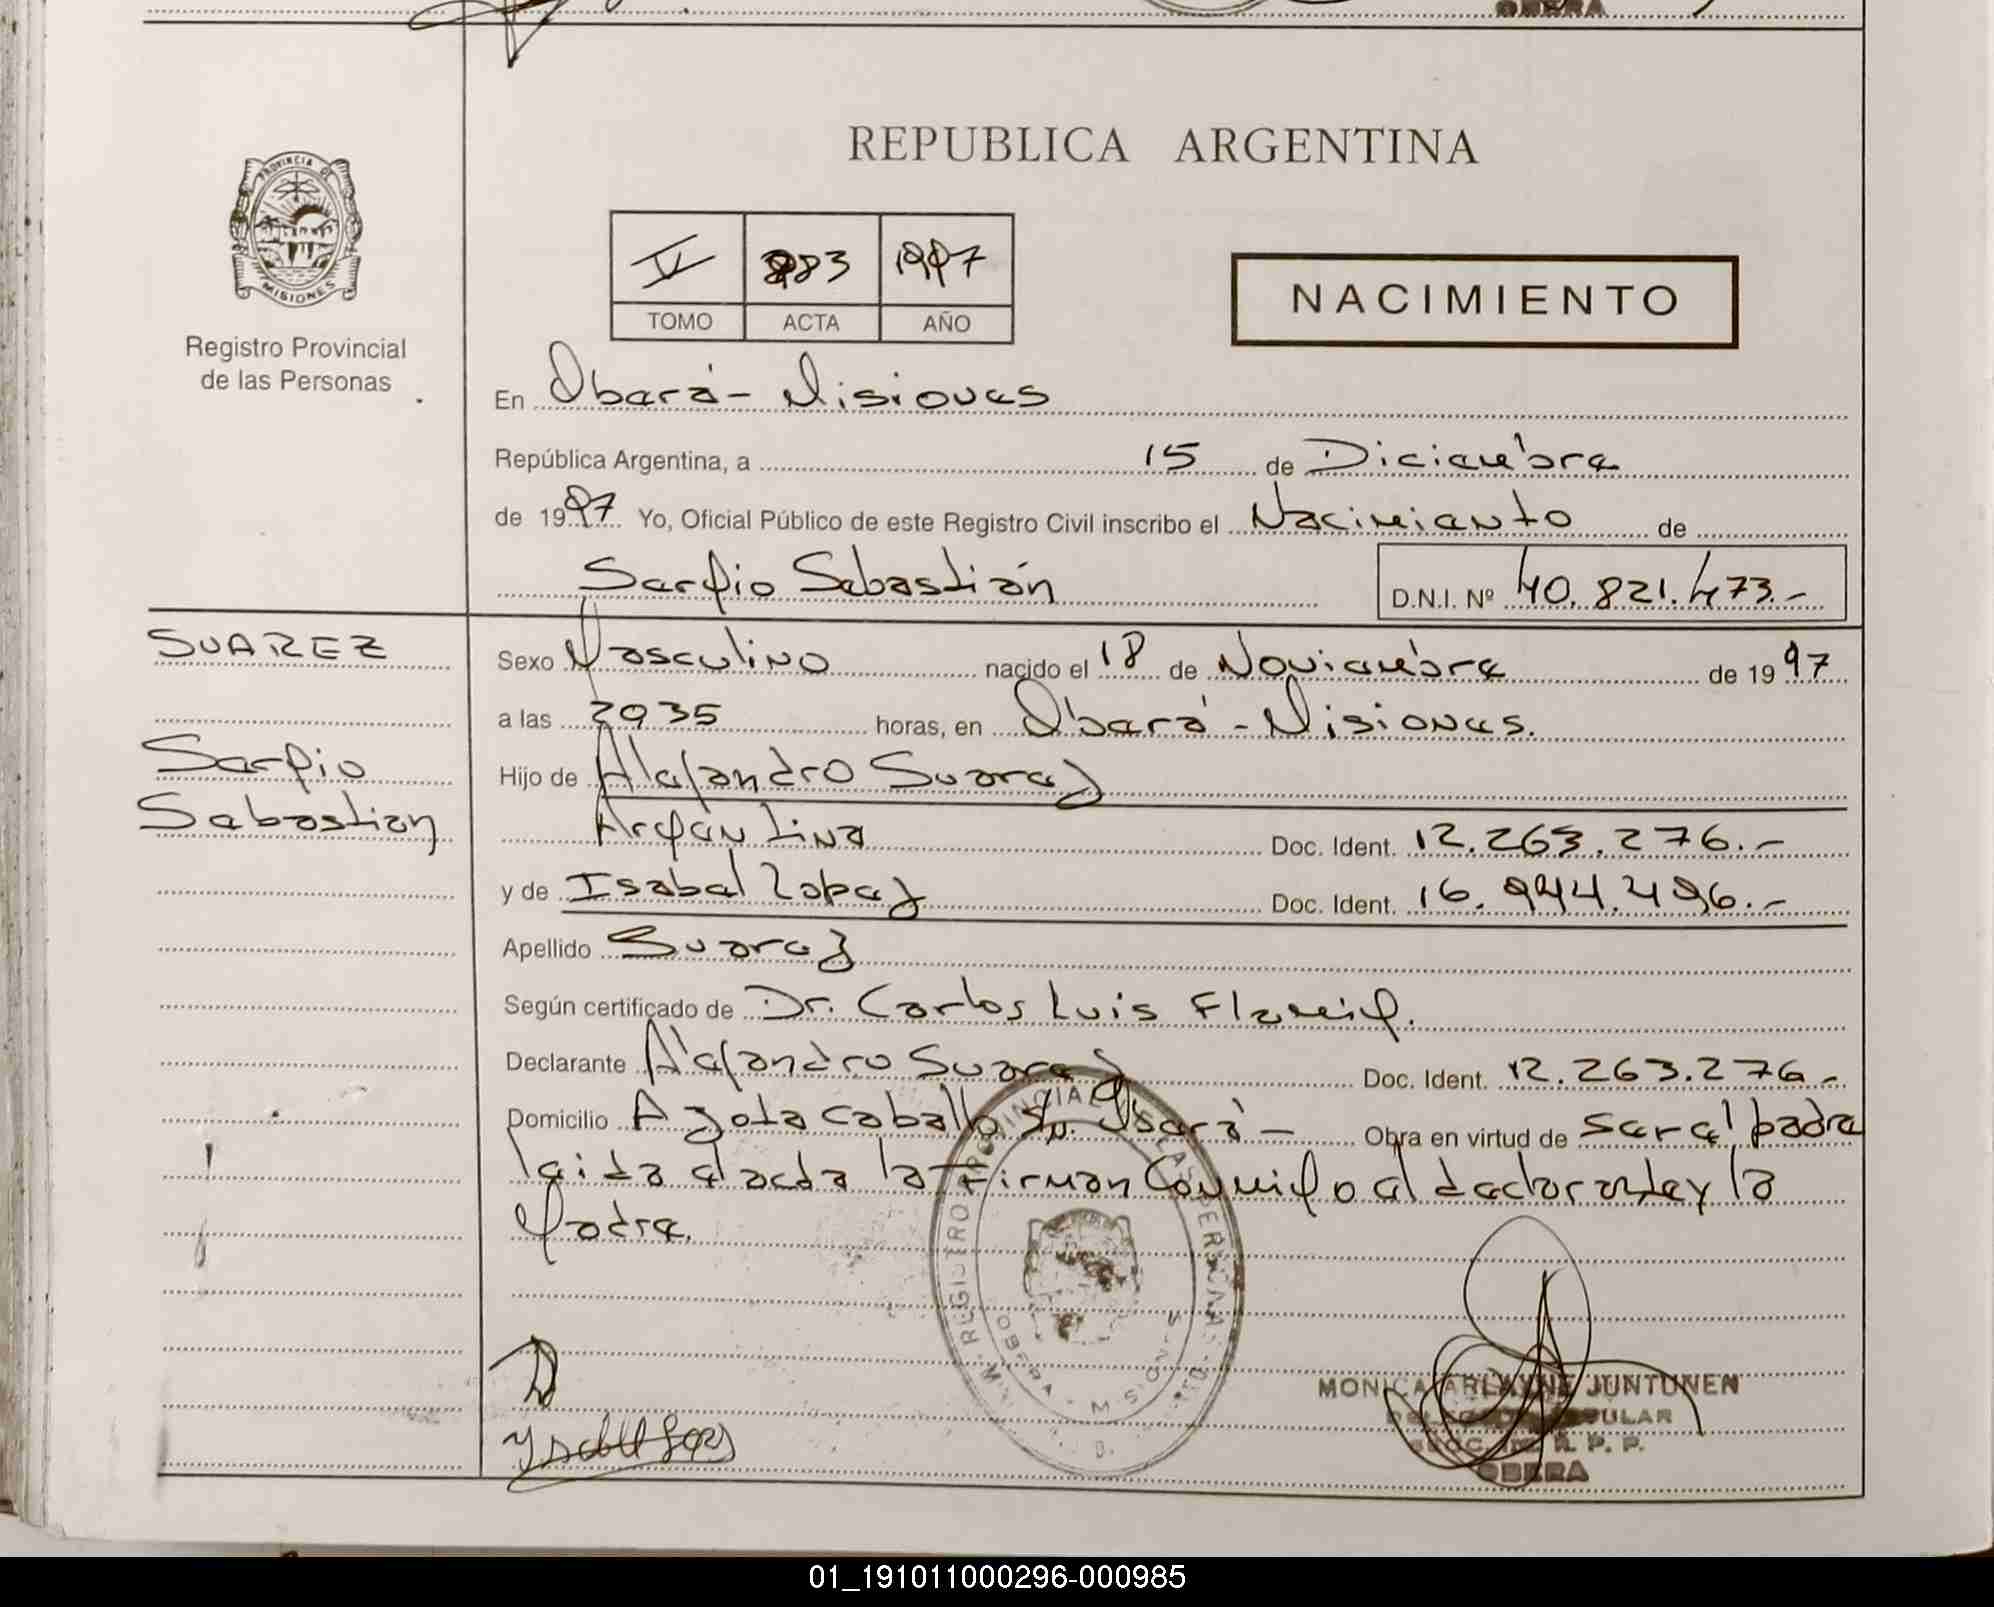 OBERA
REPUBLICA ARGENTINA
PROVINCIA DE
MISIONES
Registro Provincial
de las Personas
V 883 1997
TOMO ACTA AÑO
NACIMIENTO
En Oberá - Misiones
República Argentina, a 15 de Diciembre
de 1997 Yo, Oficial Público de este Registro Civil inscribo el Nacimiento de
Sergio Sebastián D.N.I. Nº 40.821.473.-
SUAREZ
Sergio
Sebastian
Sexo Masculino nacido el 18 de Noviembre de 1997
a las 2035 horas, en Oberá - Misiones.
Hijo de Alejandro Suarez
Argentina Doc. Ident. 12.263.276.-
y de Isabel Lopez Doc. Ident. 16.944.496.-
Apellido Suarez
Según certificado de Dr. Carlos Luis Flemig.
Declarante Alejandro Suarez Doc. Ident. 12.263.276.-
Domicilio Azota caballo S/n. Oberá - Obra en virtud de ser el padre
leida el acta la Firman Conmigo el declarante y la
Madre.
REGISTRO PROVINCIAL DE LAS PERSONAS
OBERA - MISIONES
MONICA ARLAYNE JUNTUNEN
R. P. P.
OBERA
01_191011000296-000985